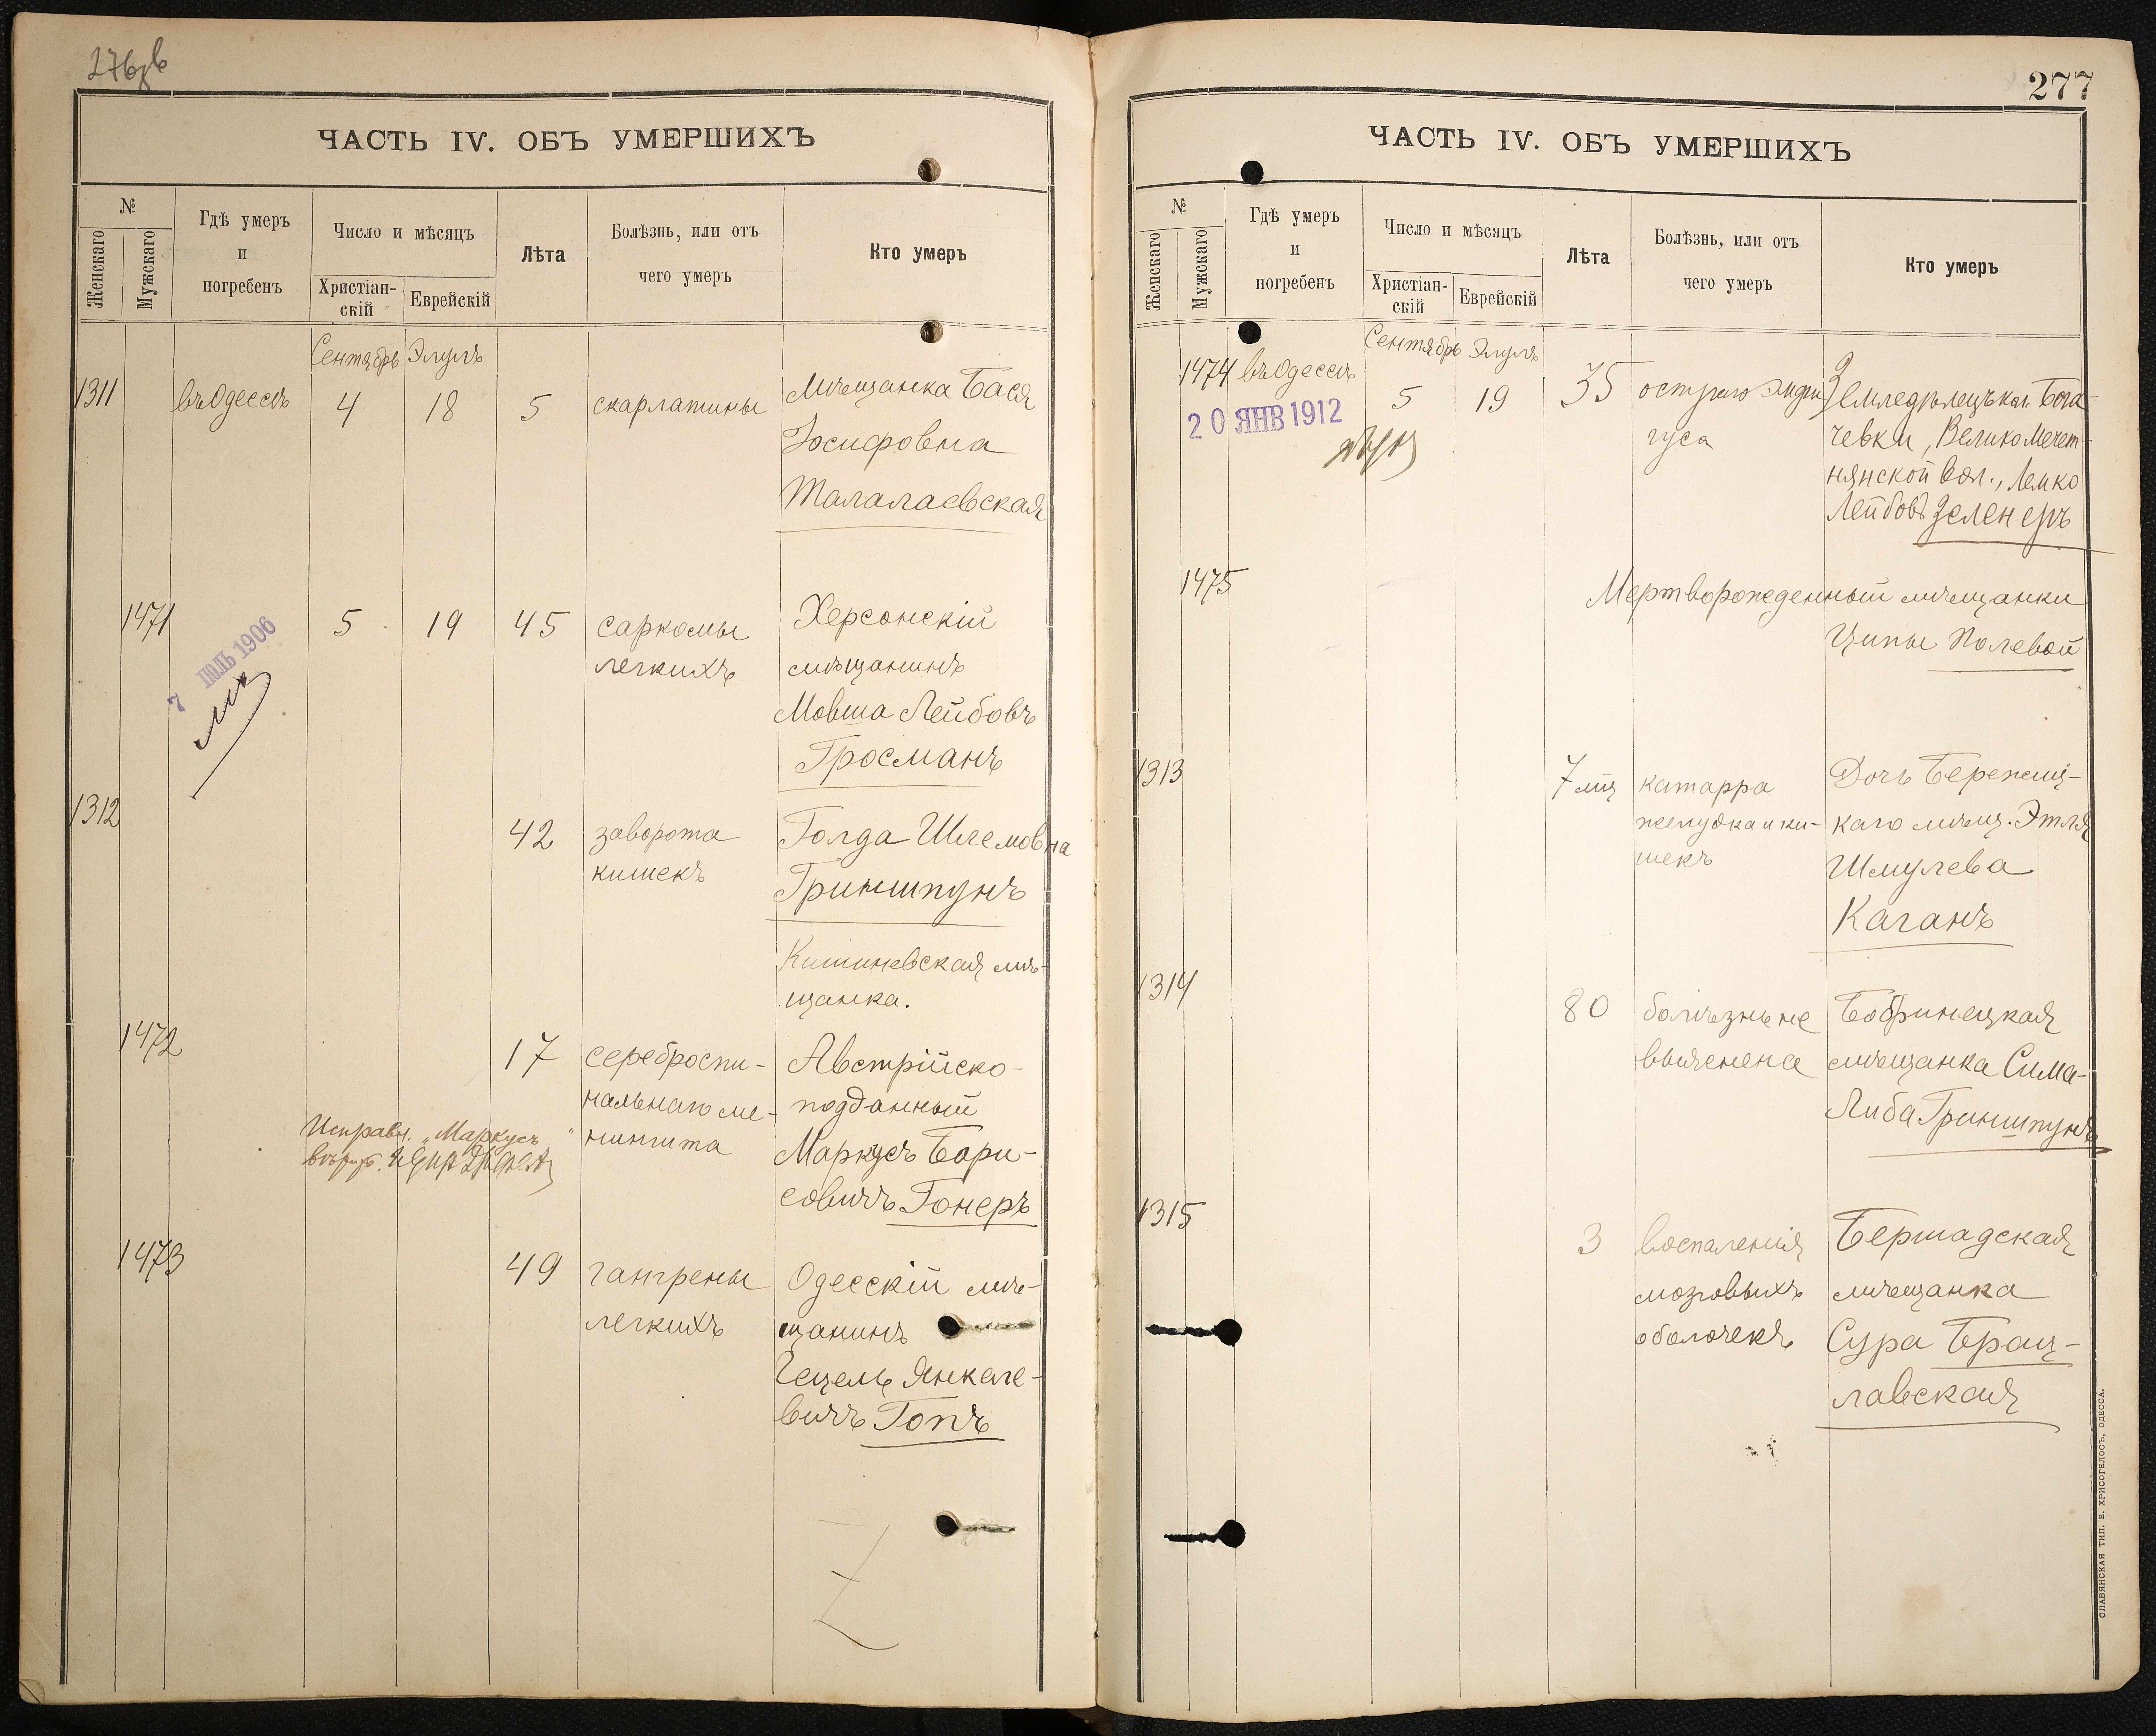 276
ЧАСТЬ IV. ОБЪ УМЕРШИХЪ
№
Женскаго
Мужскаго
Гдѣ умеръ
и
погребенъ
Число и мѣсяцъ
Христіан-
скій
Еврейскій
Лѣта
Болѣзнь, или отъ
чего умеръ
Кто умеръ
Сентябрь Элулъ
1311 въ Одессѣ 4 18 5 скарлатины Мѣщанка Бася
Іосифовна
Талалаевская
1471 5 19 45 саркомы Херсонскій
легкихъ мѣщанинъ
Мовша Лейбовъ
Гросманъ
7 ІЮЛЬ 1906
1312 42 заворота Голда Шлемовна
кишекъ Гриншпунъ
Кишиневская мѣ-
щанка.
1472 17 сереброспи- Австрійско-
нальнаго ме- подданный
нингита Маркусъ Бори-
совичъ Гонеръ
Исправл. „Маркусъ"
1473 49 гангрены Одесскій мѣ-
легкихъ щанинъ
Гецель Янкеле-
вичъ Гопъ
277
ЧАСТЬ IV. ОБЪ УМЕРШИХЪ
№
Женскаго
Мужскаго
Гдѣ умеръ
и
погребенъ
Число и мѣсяцъ
Христіан-
скій
Еврейскій
Лѣта
Болѣзнь, или отъ
чего умеръ
Кто умеръ
Сентябрь Элулъ
1474 въ Одессѣ 5 19 35 остраго Землед‍ѣлецъ кол. Бога-
чевки, Велико Мечет-
нянской вол., Лемко
Лейбовъ Зеленеръ
20 ЯНВ 1912
1475 Мертворожденный мѣщанки
Ципы Полевой
1313 7 мц катарра Дочь Бережиц-
желудка и ки- каго мѣщ. Этля
шекъ Шмулева
Каганъ
1314 80 болѣзнь не Бобринецкая
выяснена мѣщанка Сима-
Либа Гриншпунъ
1315 3 воспаленія Бершадская
мозговыхъ мѣщанка
оболочекъ Сура Брац-
лавская
СЛАВЯНСКАЯ ТИП. Е. ХРИСОГЕЛОСЪ, ОДЕССА.